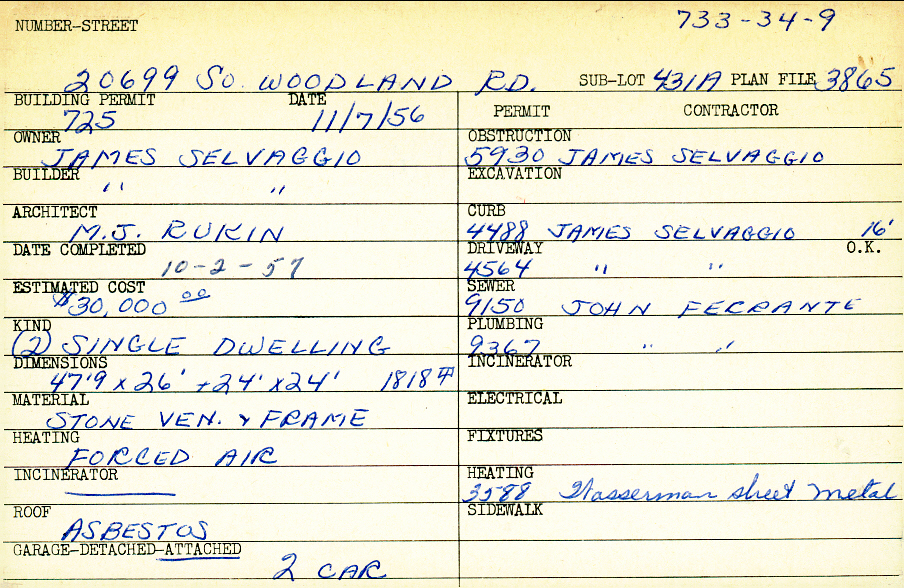 NUMBER-STREET 733-34-9
20699 SO. WOODLAND RD. SUB-LOT 431A PLAN FILE 3865
BUILDING PERMIT DATE PERMIT CONTRACTOR
725 11/7/56
OWNER OBSTRUCTION
JAMES SELVAGGIO 5930 JAMES SELVAGGIO
BUILDER EXCAVATION
" "
ARCHITECT CURB
M.J. RUKIN 4488 JAMES SELVAGGIO 16'
DATE COMPLETED DRIVEWAY O.K.
10-2-57 4564 " "
ESTIMATED COST SEWER
$30,000 00 9150 JOHN FERRANTE
KIND PLUMBING
(2) SINGLE DWELLING 9367 " "
DIMENSIONS INCINERATOR
47'9 x 26' + 24' x 24' 1818
MATERIAL ELECTRICAL
STONE VEN. & FRAME
HEATING FIXTURES
FORCED AIR
INCINERATOR HEATING
3588 Wasserman sheet metal
ROOF SIDEWALK
ASBESTOS
GARAGE-DETACHED-ATTACHED
2 CAR